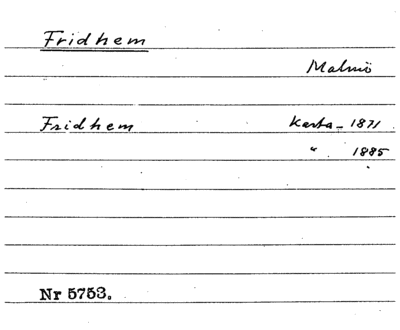 Fridhem
Malmö
Fridhem Karta - 1871
" 1885
Nr 5753.